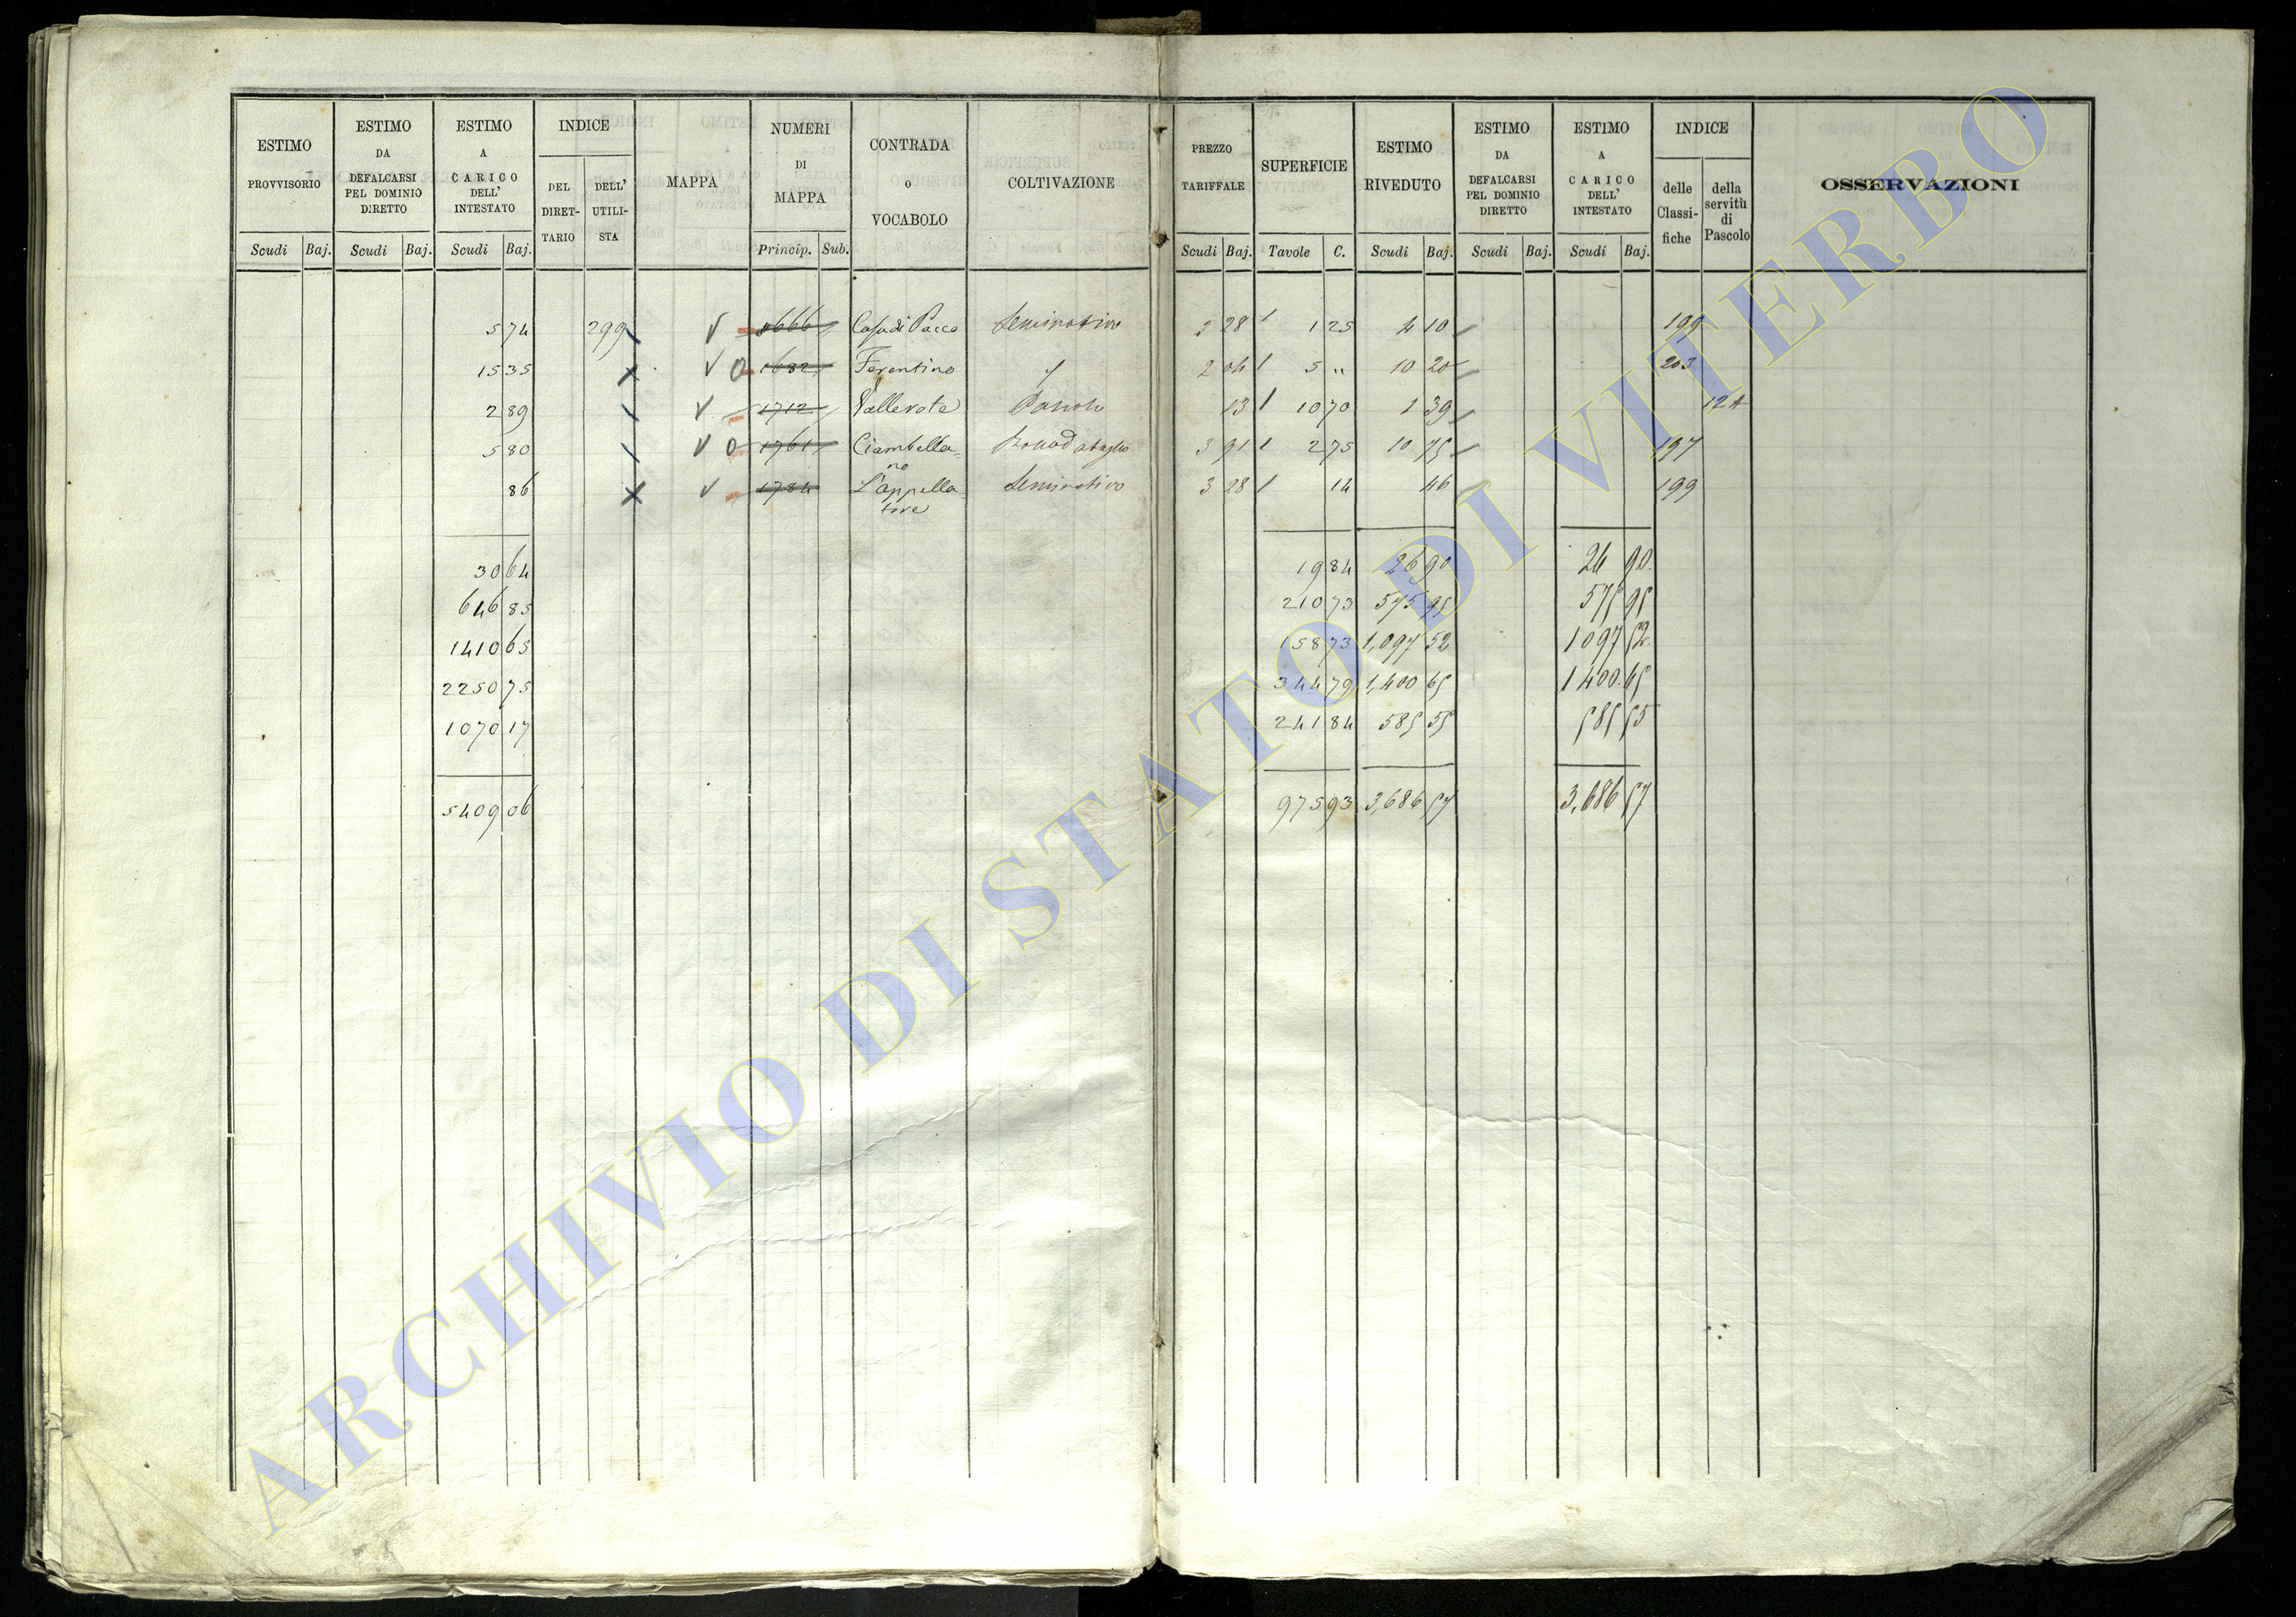 ESTIMO PROVVISORIO Scudi Baj.
ESTIMO DA DEFALCARSI PEL DOMINIO DIRETTO Scudi Baj.
ESTIMO A CARICO DELL' INTESTATO Scudi Baj.
INDICE
DEL DIRET-TARIO
DELL' UTILI-STA
MAPPA
NUMERI DI MAPPA Princip. Sub.
CONTRADA o VOCABOLO
COLTIVAZIONE
PREZZO TARIFFALE Scudi Baj.
SUPERFICIE Tavole C.
ESTIMO RIVEDUTO Scudi Baj.
ESTIMO DA DEFALCARSI PEL DOMINIO DIRETTO Scudi Baj.
ESTIMO A CARICO DELL' INTESTATO Scudi Baj.
INDICE
delle Classi-fiche
della servitù di Pascolo
OSSERVAZIONI
5 74 299 1666 Seminativo 3 28 1 25 4 10 199
15 35 1682 Ferentino 2 04 5 " 10 20 203
2 89 1712 Vallerota 13 10 70 1 39 124
5 80 1761 Ciambella-no 3 91 2 75 10 75 197
86 1784 L'appella tore Seminativo 3 28 14 46 199
30 64 19 84 26 90 26 90
646 85 210 73 575 95 575 95
1410 65 158 73 1,097 52 1097 52
2250 75 344 79 1,400 65 1400 65
1070 17 241 84 585 55 585 55
5409 06 975 93 3,686 57 3,686 57
ARCHIVIO DI STATO DI VITERBO